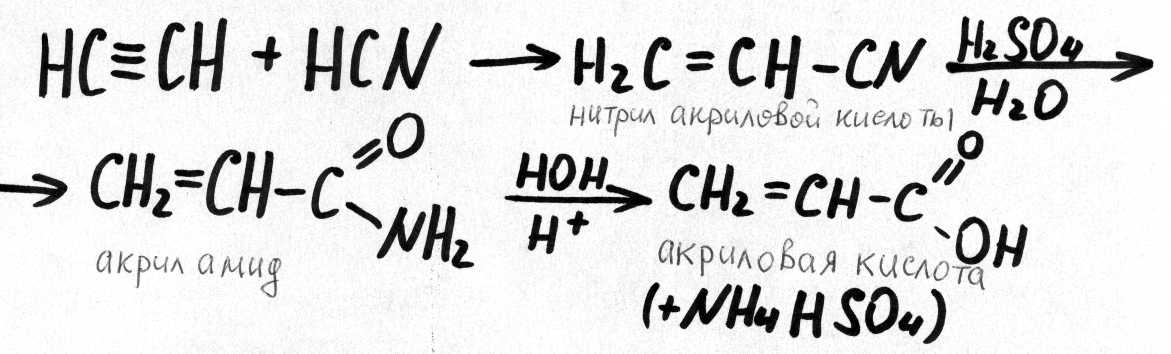 HC≡CH + HCN → H₂C=CH-CN H₂SO₄ / H₂O →
нитрил акриловой кислоты
→ CH₂=CH-C(=O)-NH₂ HOH / H⁺ → CH₂=CH-C(=O)-OH
акриламид акриловая кислота
(+NH₄HSO₄)